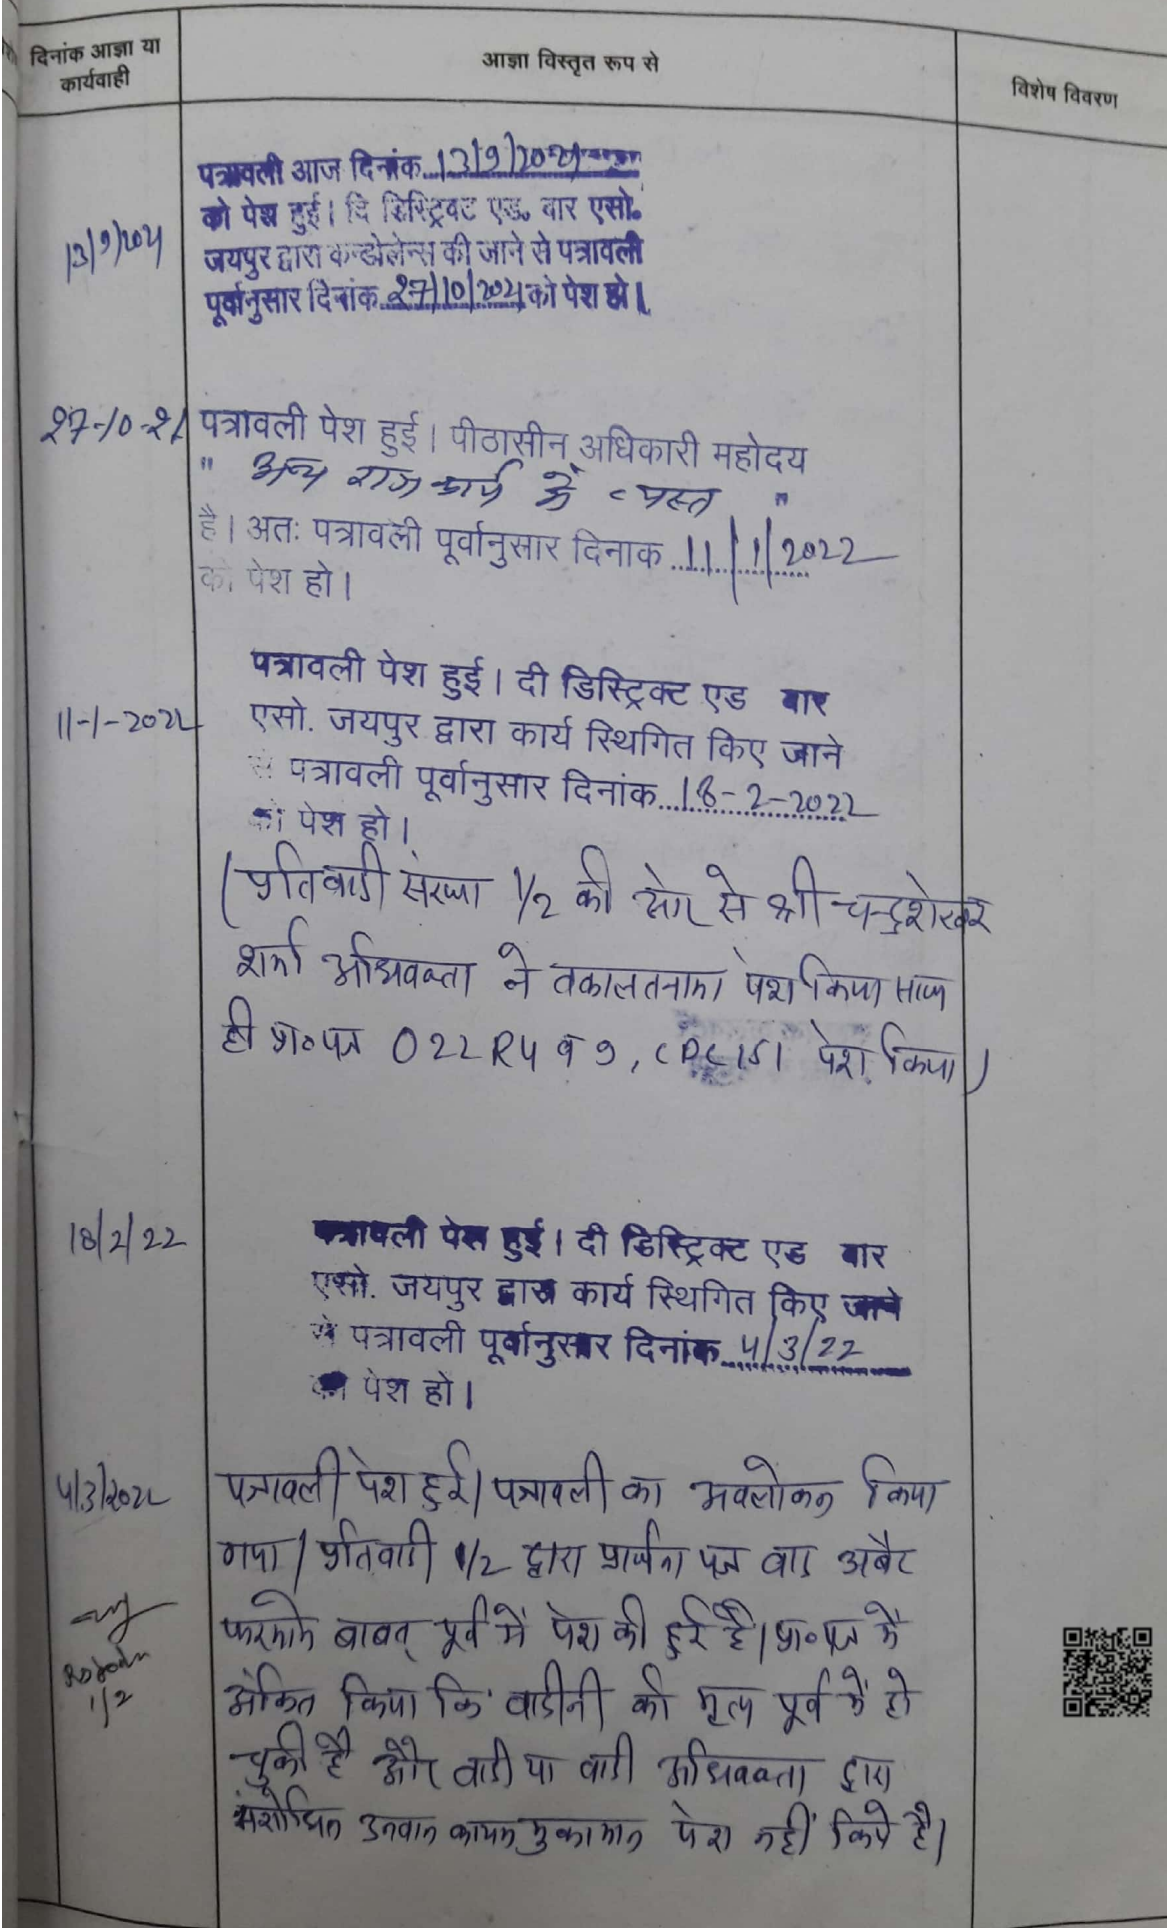 दिनांक आज्ञा या
कार्यवाही
आज्ञा विस्तृत रूप से
विशेष विवरण
पत्रावली आज दिनांक 13/9/2021
को पेश हुई। दि डिस्ट्रिक्ट एड. बार एसो.
13/9/2021
जयपुर द्वारा कन्डोलेन्स की जाने से पत्रावली
पूर्वानुसार दिनांक 27/10/2021 को पेश हो।
27-10-21 पत्रावली पेश हुई। पीठासीन अधिकारी महोदय
" अन्य राजकार्य में व्यस्त "
है। अतः पत्रावली पूर्वानुसार दिनाक 11/1/2022
को पेश हो।
पत्रावली पेश हुई। दी डिस्ट्रिक्ट एड बार
11-1-2022 एसो. जयपुर द्वारा कार्य स्थिगित किए जाने
से पत्रावली पूर्वानुसार दिनांक 18-2-2022
को पेश हो।
(प्रतिवादी संख्या 1/2 की ओर से श्री चन्द्रशेखर
शर्मा अधिवक्ता ने वकालतनामा पेश किया साथ
ही प्रा०पत्र O22 R4 व 9, CPC 151 पेश किया)
18/2/22 पत्रावली पेश हुई। दी डिस्ट्रिक्ट एड बार
एसो. जयपुर द्वारा कार्य स्थिगित किए जाने
से पत्रावली पूर्वानुसार दिनांक 4/3/22
को पेश हो।
4/3/2022 पत्रावली पेश हुई। पत्रावली का अवलोकन किया
गया। प्रतिवादी 1/2 द्वारा प्रार्थना पत्र वाद अबैट
फरमाने बाबत् पूर्व में पेश की हुई है। प्रा०पत्र में
1/2
अंकित किया कि वादीनी की मृत्यु पूर्व में हो
चुकी है और वादी या वादी अधिवक्ता द्वारा
संशोधित उनवान कायम मुकामान पेश नहीं किये है।